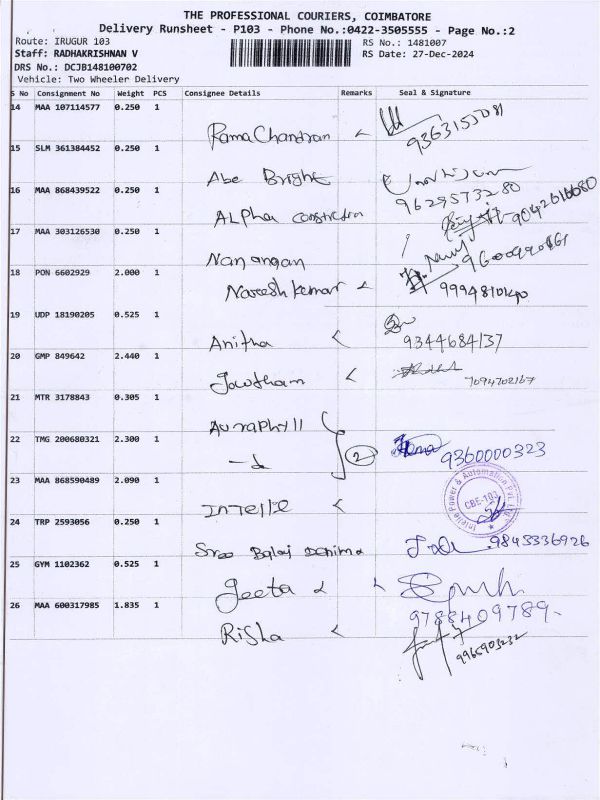 THE PROFESSIONAL COURIERS, COIMBATORE
Delivery Runsheet - P103 - Phone No.:0422-3505555 - Page No.:2
Route: IRUGUR 103 RS No.: 1481007
Staff: RADHAKRISHNAN V RS Date: 27-Dec-2024
DRS No.: DCJB148100702
Vehicle: Two Wheeler Delivery
S No Consignment No Weight PCS Consignee Details Remarks Seal & Signature
14 MAA 107114577 0.250 1
Rama Chandran 9363155081
15 SLM 361384452 0.250 1
Abe Bright
9629573280
16 MAA 868439522 0.250 1
ALpha Constrction 9042616680
17 MAA 303126530 0.250 1
Nanjangan
18 PON 6602929 2.000 1
Nareesh kumar
19 UDP 18190205 0.525 1
Anitha 9344684137
20 GMP 849642 2.440 1
Jowtham 7094702167
21 MTR 3178843 0.305 1
Auraphyll
22 TMG 200680321 2.300 1
2 9360000323
23 MAA 868590489 2.090 1
Intellie
Intelie Power & Automation Pvt. Ltd.
CBE-103
24 TRP 2593056 0.250 1
Sree Balaj Denima 9845336926
25 GYM 1102362 0.525 1
Jeeta
9788409789
26 MAA 600317985 1.835 1
Risha
9965903232